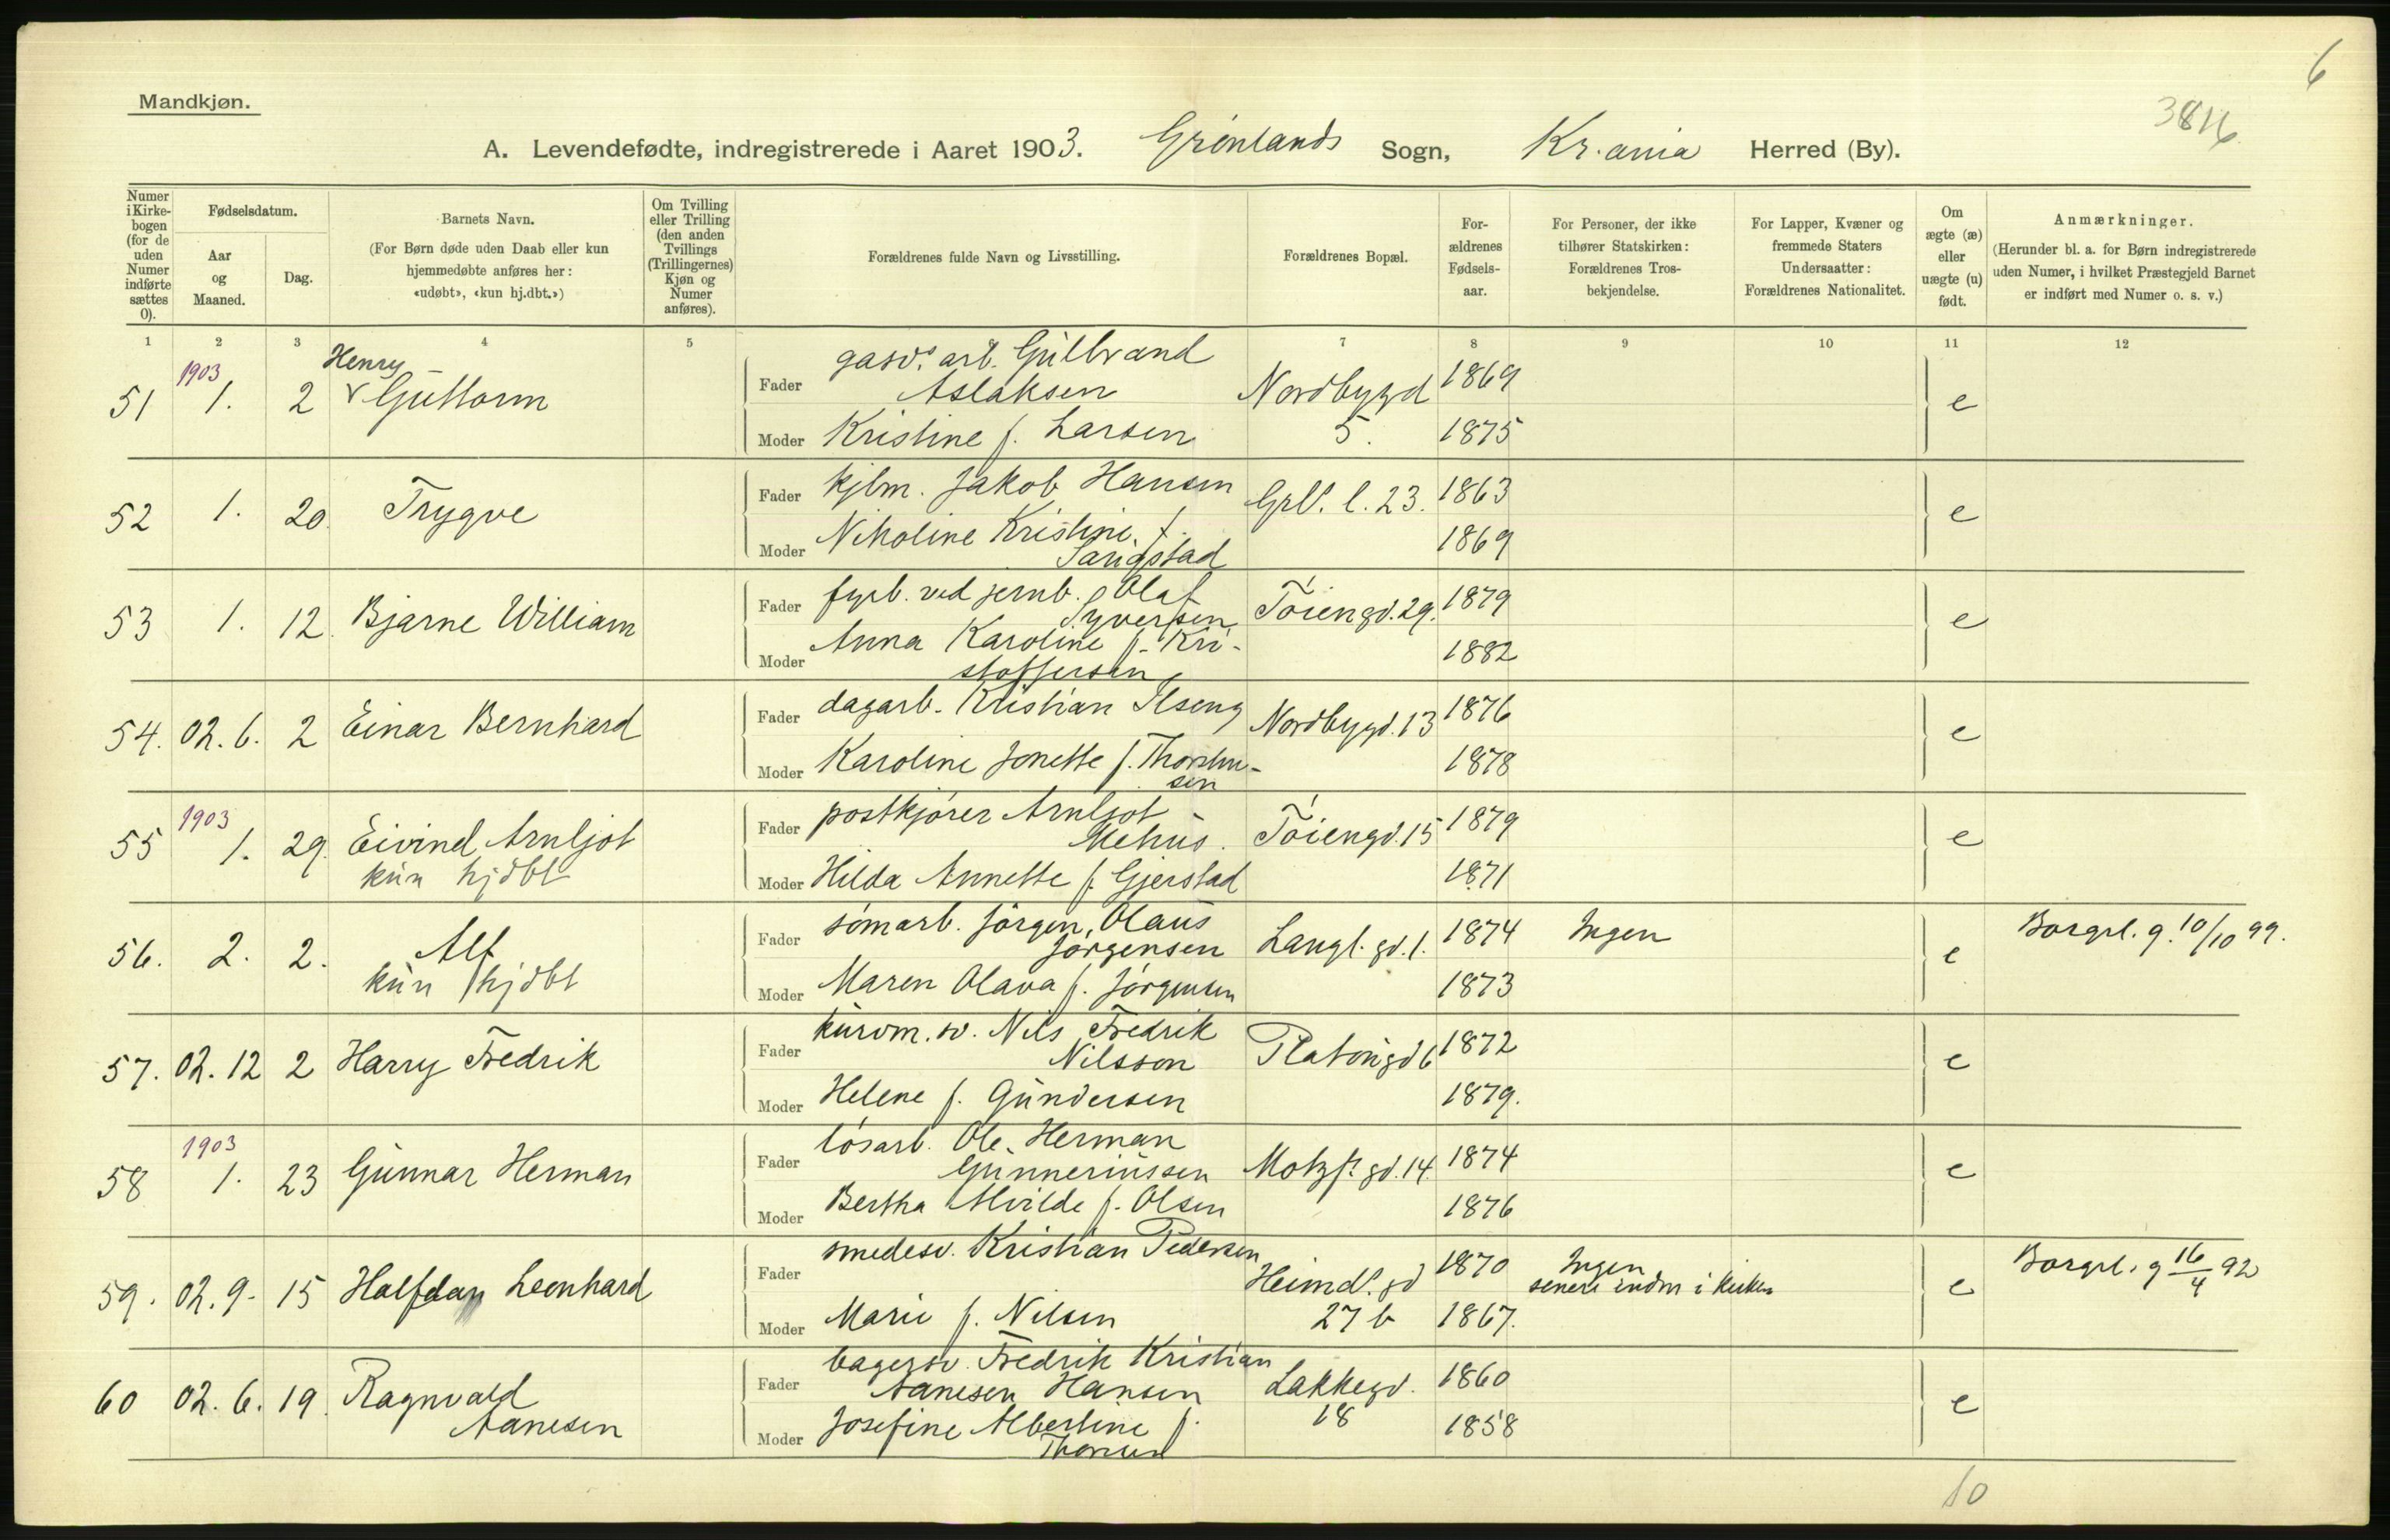 6
Mandkjøn.
3816
A. Levendefødte, indregistrerede i Aaret 1903. Grönlands Sogn, Kr.ania Herred (By).
Numer i Kirkebogen (for de uden Numer indførte sættes 0).
Fødselsdatum.
Aar og Maaned.
Dag.
Barnets Navn.
(For Børn døde uden Daab eller kun hjemmedøbte anføres her: «udøbt», «kun hj.dbt.»)
Om Tvilling eller Trilling (den anden Tvillings (Trillingernes) Kjøn og Numer anføres).
Forældrenes fulde Navn og Livsstilling.
Forældrenes Bopæl.
Forældrenes Fødselsaar.
For Personer, der ikke tilhører Statskirken: Forældrenes Trosbekjendelse.
For Lapper, Kvæner og fremmede Staters Undersaatter: Forældrenes Nationalitet.
Om ægte (æ) eller uægte (u) født.
Anmærkninger.
(Herunder bl. a. for Børn indregistrerede uden Numer, i hvilket Præstegjeld Barnet er indført med Numer o. s. v.)
1 2 3 4 5 7 8 9 10 11 12
51 1903 1. 2 Henry Guttorm
Fader gasv. arb. Gulbrand Aslaksen Nordbygd 5. 1869 e
Moder Kristine f. Larsen 1875
52 1. 20. Trygve
Fader kjlm. Jakob Hansen Grll. l. 23. 1863 e
Moder Nikoline Kristine f. Sangstad 1869
53 1. 12. Bjarne William
Fader fyrb. ved jernb. Olaf Syversen Töiengd. 29. 1879 e
Moder Anna Karoline f. Kristoffersen 1882
54. 02. 6. 2 Einar Bernhard
Fader dagarb. Kristian Ilseng Nordbygd. 13 1876 e
Moder Karoline Jonette f. 1878
55 1903 1. 29. Eivind Arnljot
kun hjdbt
Fader postkjörer Arnljot Mehus. Töiengd. 15 1879 e
Moder Hilda Annette f. Gjerstad 1871
56. 2. 2. Alf
kun hjdbt
Fader sömarb. Jörgen Olaus Jörgensen Langl. gd. 1. 1874 Ingen e Borgrl. g. 10/10 99.
Moder Maren Olava f. Jörgensen 1873
57. 02. 12 2 Harry Fredrik
Fader kurvm. sv. Nils Fredrik Nilsson Platougd 6 1872 e
Moder Helene f. Gundersen 1879.
58 1903 1. 23 Gunnar Herman
Fader lösarb. Ole Herman Gunneriussen Motzf. gd. 14. 1874 e
Moder Bertha Alvilde f. Olsen 1876
59. 02. 9. 15 Halfdan Leonhard
Fader smedesv. Kristian Pedersen Heimdl. gd 27 b 1870 Ingen senere indm i kirken e Borgrl. g 16/4 92
Moder Marie f. Nilsen 1867.
60 02. 6. 19. Ragnvald Aanesen
Fader bagersv. Fredrik Kristian Aanesen Hansen Lakkegd. 18 1860 e
Moder Josefine Albertine f. Thorsen 1858
10